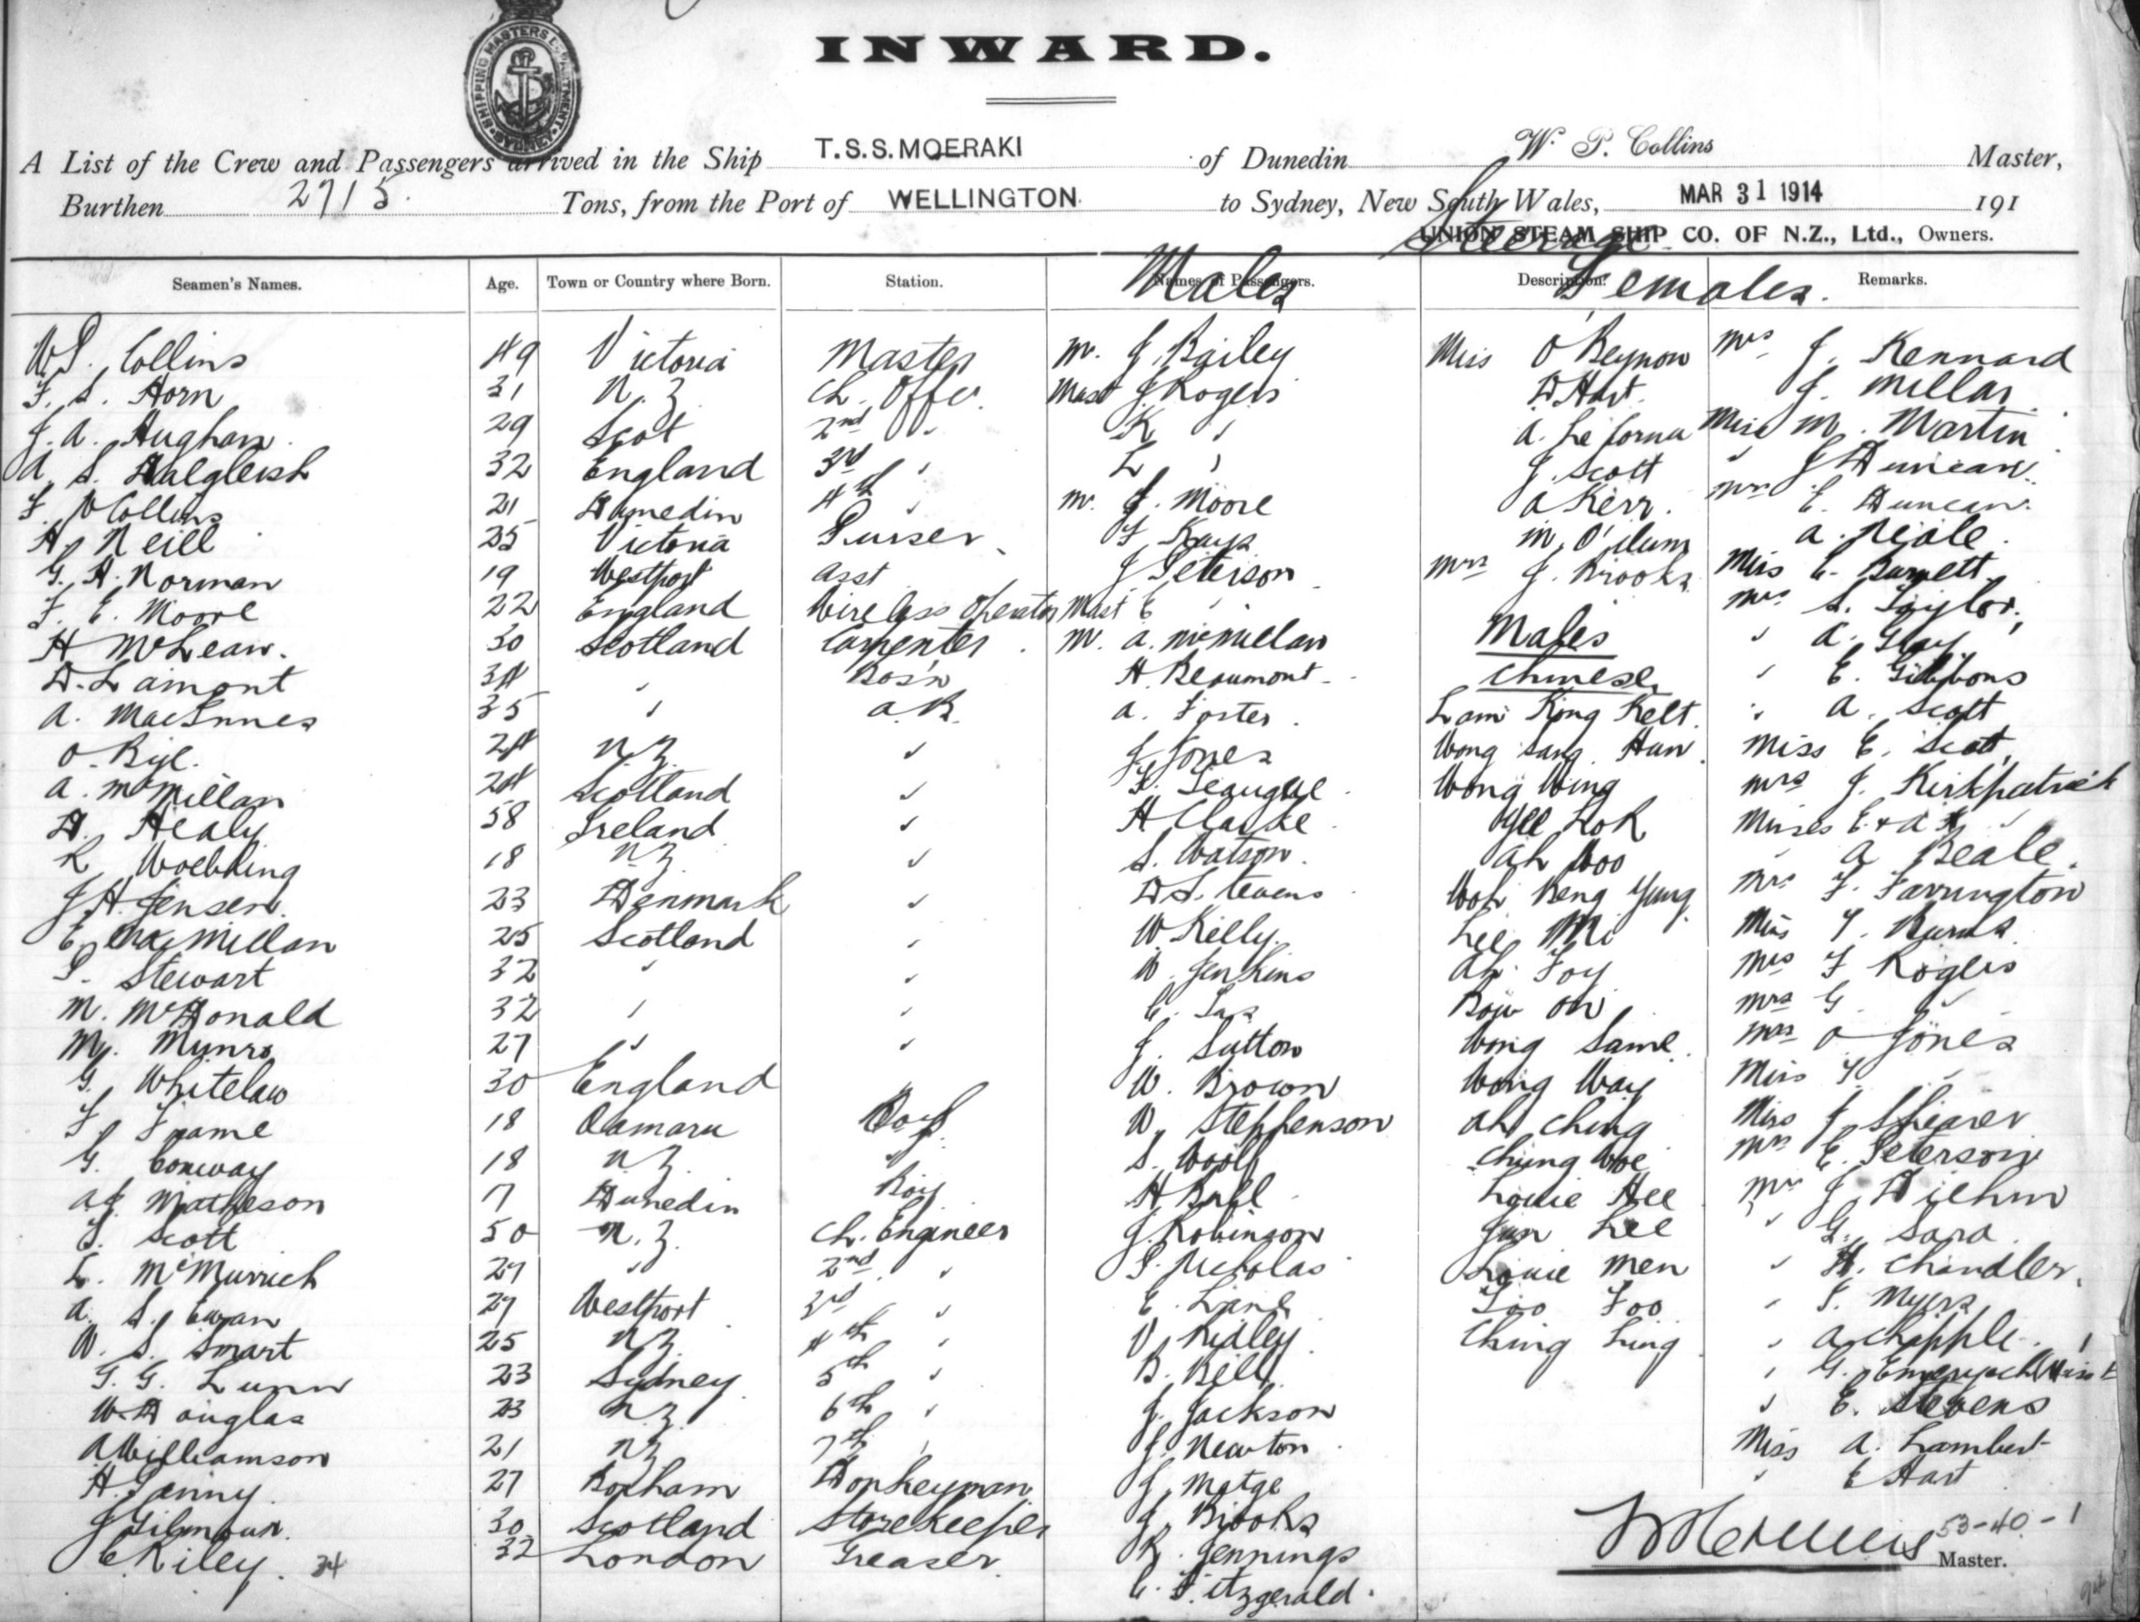 INWARD.
SHIPPING MASTERS DEPARTMENT SYDNEY
A List of the Crew and Passengers arrived in the Ship T.S.S. MOERAKI of Dunedin W. P. Collins Master,
Burthen 2715 Tons, from the Port of WELLINGTON to Sydney, New South Wales, MAR 31 1914 191
Steerage UNION STEAM SHIP CO. OF N.Z., Ltd., Owners.
Seamen's Names. Age. Town or Country where Born. Station. Names of Passengers. Description. Remarks.
Males Females.
W P. Collins 49 Victoria Master Mr. J. Bailey Miss O Beynon Mrs J. Kennard
F. S. Horn 31 N.Z. Ch. Offr. Mast J Rogers D Hart J. Millar
J. A. Hughan 29 Scot 2nd " K " A. Le Cornu Miss M. Martin
A. S. Dalgleish 32 England 3rd " L " J. Scott " J Duncan
F. Collins 21 Dunedin 4th " Mr. J. Moore A Kerr. Mrs E. Duncan
A. Neill 25 Victoria Purser F Kays M. A. Neale.
G. H. Norman 19 Westport Asst J Peterson Mrs J. Brooks Miss E. Burnett
F. E. Moore 22 England Wireless Operator Mast E " Mrs S. Taylor
H McLean. 30 Scotland Carpenter Mr. A. McMillan Males " A. Gray
D. Lamont 34 " Bos'n H. Beaumont Chinese " E. Gibbons
A. MacInnes 35 " A.B. A. Foster Lam Kong Kelt " A. Scott
O. Bye. 24 N.Z. " J Jones Wong Sang Hun Miss E. Scott
A. McMillan 24 Scotland " F. Teague Wong Wing Mrs J. Kirkpatrick
D. Healy 58 Ireland " H Clarke Yee Lok Misses E. & A K "
R Woebking 18 N.Z. " S. Watson Ah Woo " A Beale.
J. H. Jensen. 23 Denmark " D S. Stevens Woh Keng Yung Mrs F. Farrington
E. MacMillan 25 Scotland " W Kelly Lee Mi Miss Y. Burns
P. Stewart 32 " " W. Jenkins Ah Foy Mrs F Rogers
M. McDonald 32 " " C. Bow On Mrs G "
M. Munro 27 " " J. Sutton Wong Same Mrs O Jones
G. Whitelaw 30 England W. Brown Wong Way Miss Y. "
F. Frame 18 Oamaru Boy W. Stephenson Ah Ching Miss J Shearer
G. Conway 18 N.Z. " S. Woolf Chung Woe Mrs E. Peterson
A J. Matheson 17 Dunedin Boy H Ball Louie Hee Mrs J. Diehm
T. Scott 50 N.Z. Ch. Engineer J. Robinson Jun Lee " G. Sara
L. McMurrich 27 " 2nd " P. Nicholas Louie Men " H. Chandler
A. S. Ewan 27 Westport 3rd " E. Lane Foo Foo " F. Myers
W. S. Smart 25 N.Z. 4th " V Ridley Ching Ling " A. Chapple
T. G. Lunn 23 Sydney 5th " B. Bell " G.
W. Douglas 23 N.Z. 6th " J. Jackson " E. Stevens
A Williamson 21 N.Z. 7th " J. Newton Miss A. Lambert
H. Janny 27 Donkeyman J. Matge " E Hart
J Gilmour. 30 Scotland Storekeeper J Brooks 53-40-1
C Riley. 34 32 London Greaser R. Jennings Master.
C. Fitzgerald.